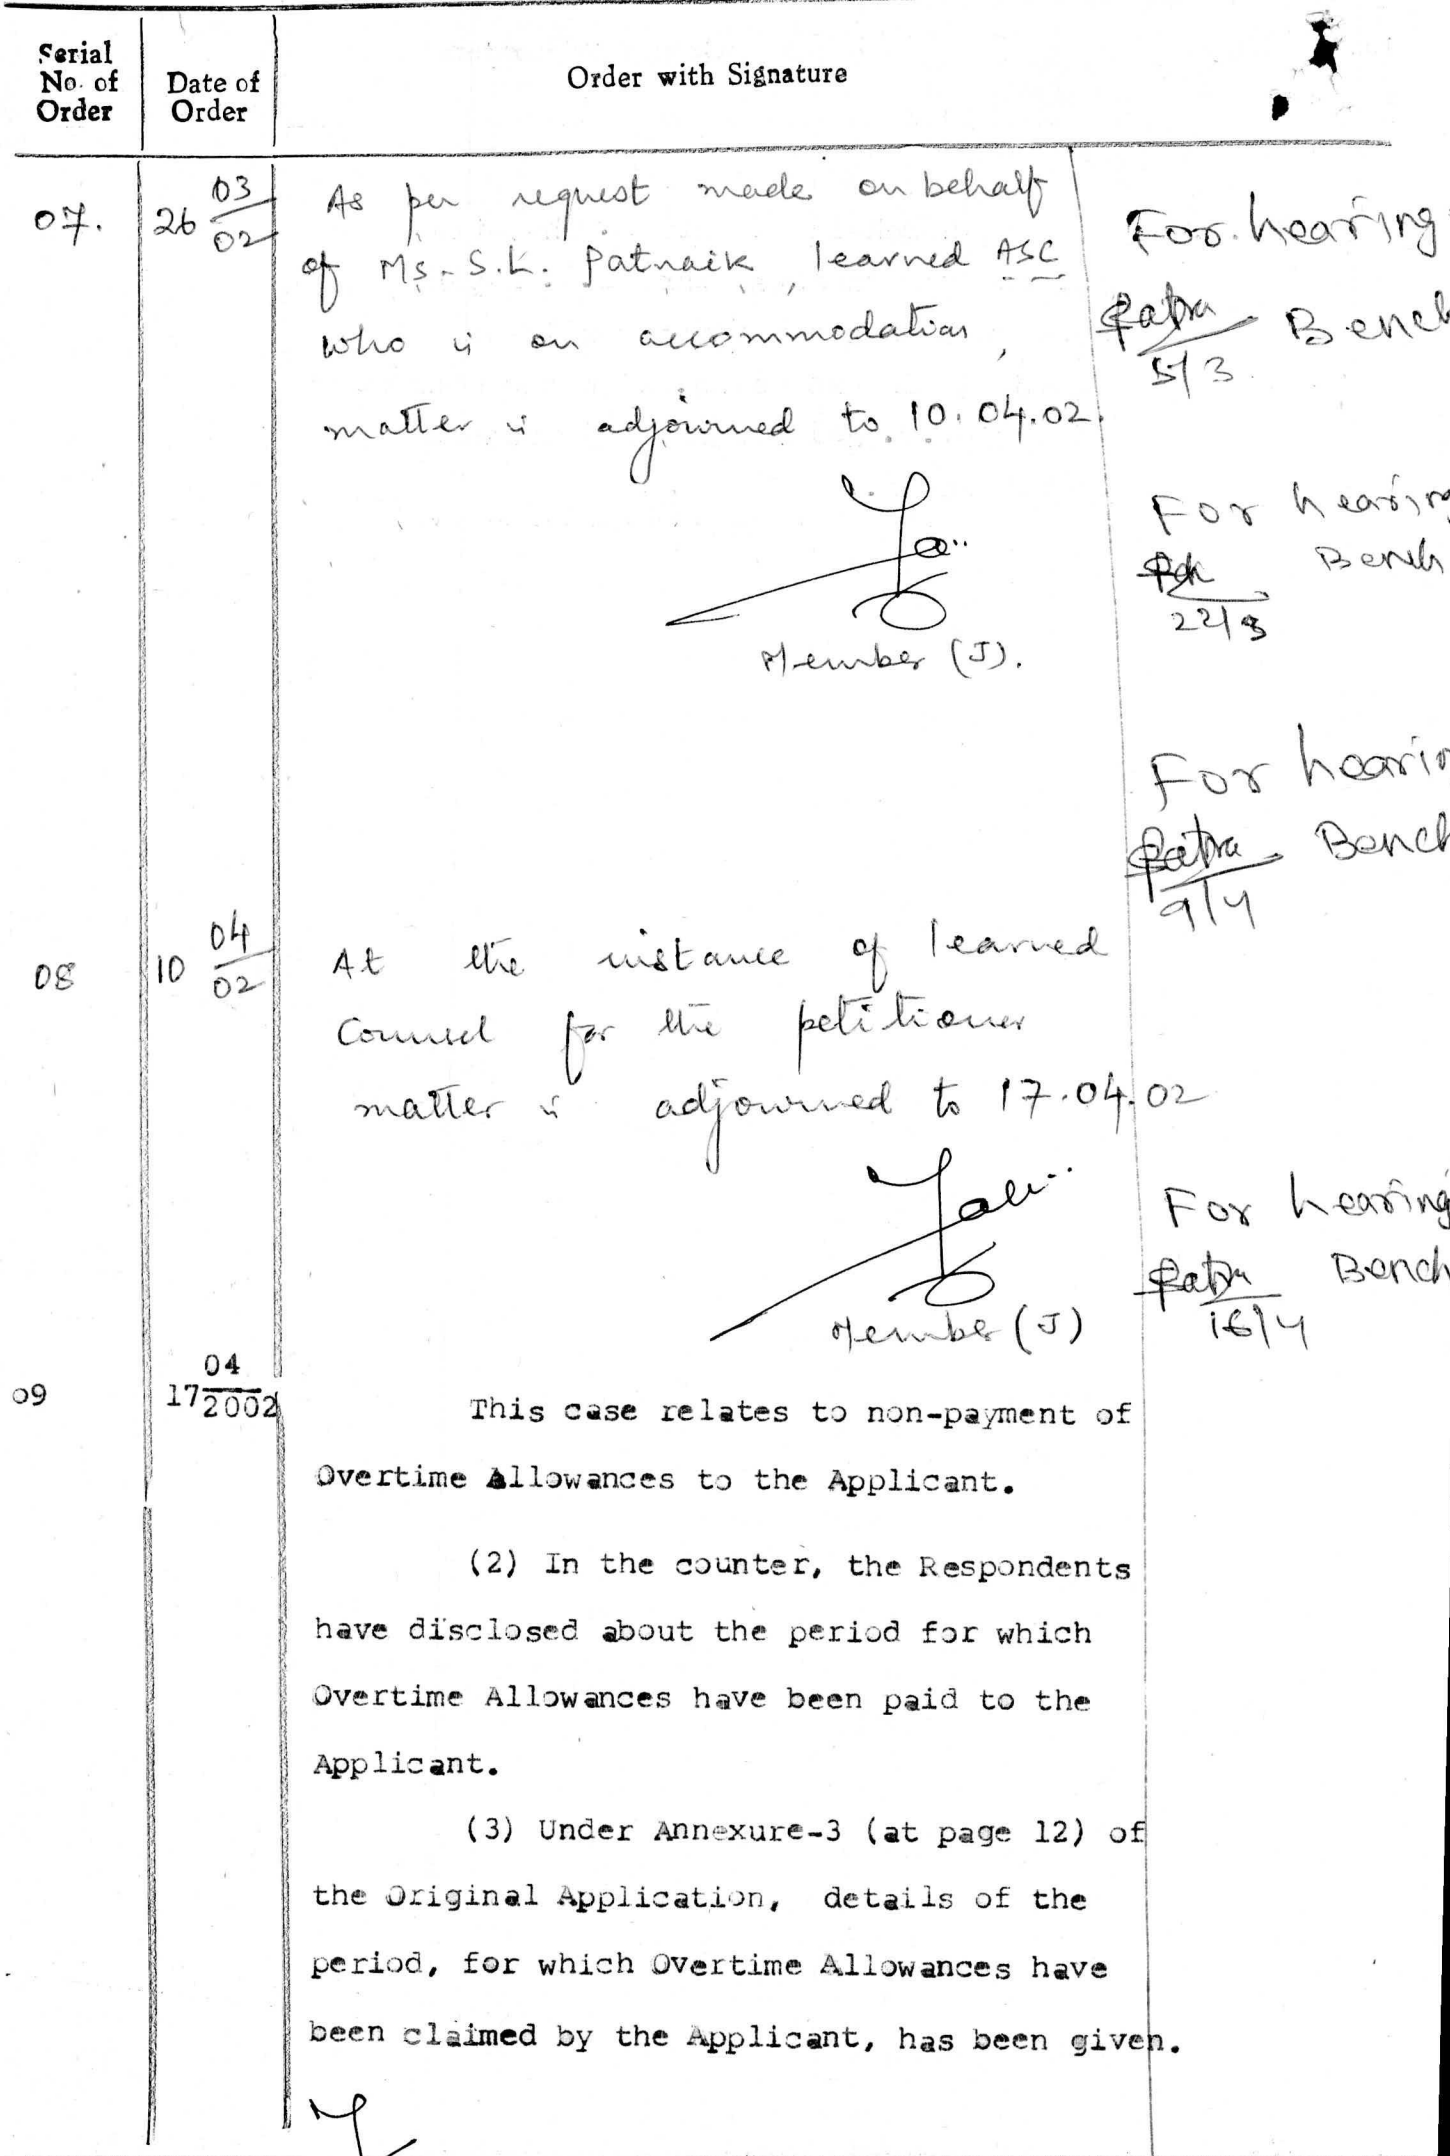 Serial
No. of
Order
Date of
Order
Order with Signature
07.
26 03/02
As per request made on behalf
of Ms. S.L. Patnaik, learned ASC
who is on accommodation,
matter is adjourned to 10.04.02.
Member (J).
For hearing
Patra Bench
5/3
For hearing
Bench
22/3
For hearing
Patra Bench
9/4
08
10 04/02
At the instance of learned
Counsel for the petitioner
matter is adjourned to 17.04.02
Member (J)
For hearing
Patra Bench
16/4
09
17 04/2002
This case relates to non-payment of
Overtime Allowances to the Applicant.
(2) In the counter, the Respondents
have disclosed about the period for which
Overtime Allowances have been paid to the
Applicant.
(3) Under Annexure-3 (at page 12) of
the Original Application, details of the
period, for which Overtime Allowances have
been claimed by the Applicant, has been given.